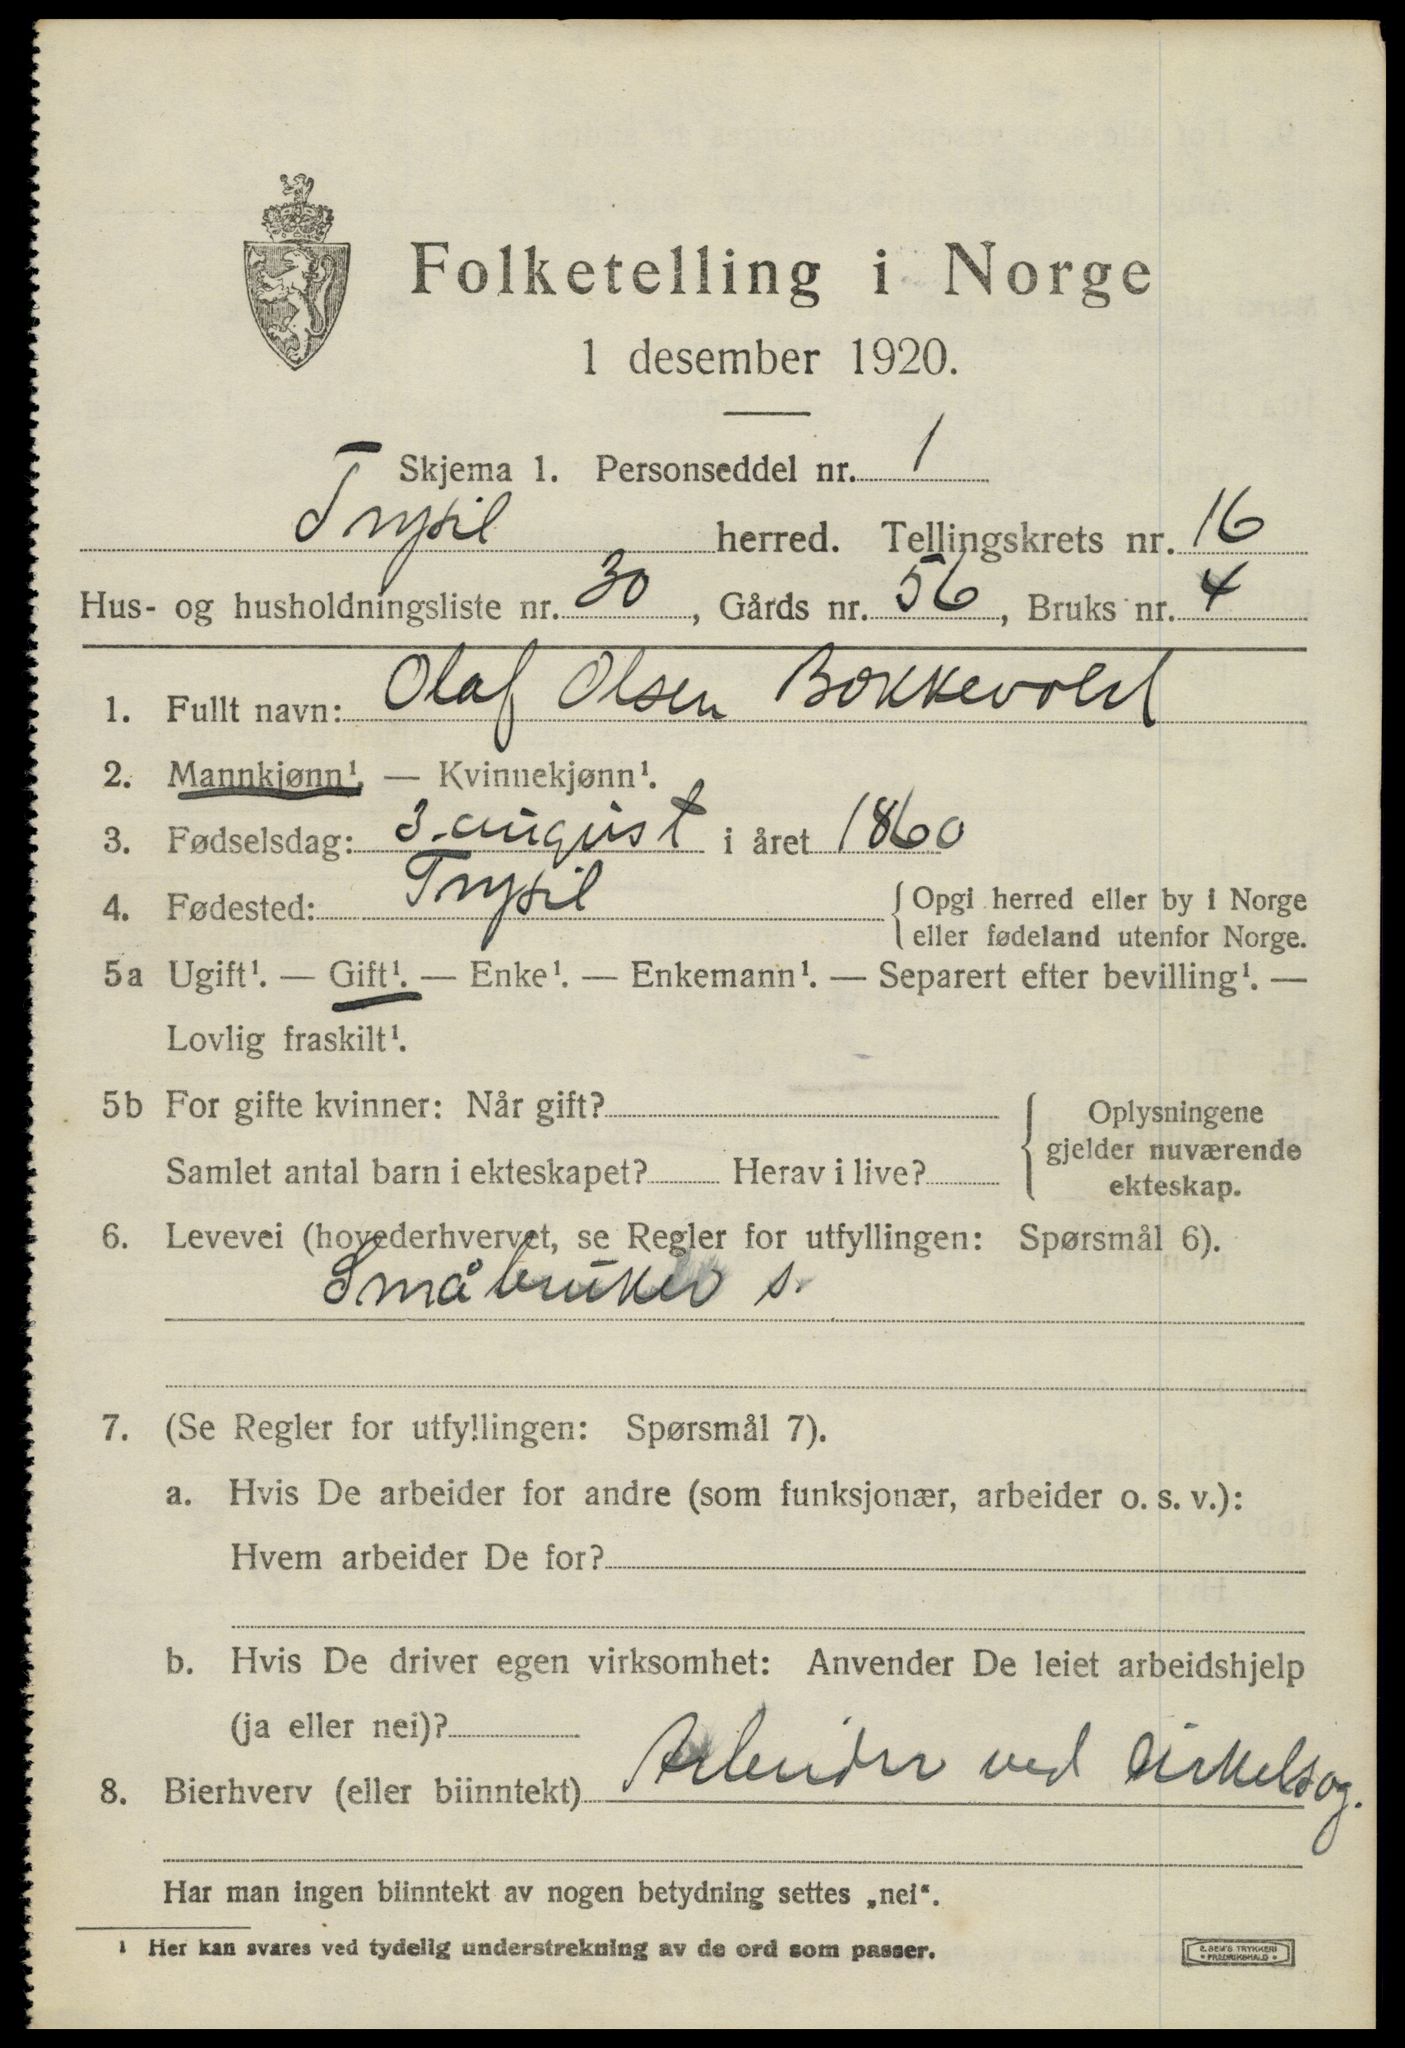 Folketelling i Norge
1 desember 1920.
Skjema 1. Personseddel nr. 1
Trysil herred. Tellingskrets nr. 16
Hus- og husholdningsliste nr. 30, Gårds nr. 56, Bruks nr. 4
1. Fullt navn: Olaf Olsen Bokkevold
2. Mannkjønn¹. — Kvinnekjønn¹.
3. Fødselsdag: 3. august i året 1860
4. Fødested: Trysil {Opgi herred eller by i Norge
eller fødeland utenfor Norge.
5a Ugift¹. — Gift¹. — Enke¹. — Enkemann¹. — Separert efter bevilling¹. —
Lovlig fraskilt¹.
5b For gifte kvinner: Når gift? { Oplysningene
gjelder nuværende
Samlet antal barn i ekteskapet? Herav i live?
ekteskap.
6. Levevei (hovederhvervet, se Regler for utfyllingen: Spørsmål 6).
Småbruker s.
7. (Se Regler for utfyllingen: Spørsmål 7).
a. Hvis De arbeider for andre (som funksjonær, arbeider o. s. v.):
Hvem arbeider De for?
b. Hvis De driver egen virksomhet: Anvender De leiet arbeidshjelp
(ja eller nei)?
8. Bierhverv (eller biinntekt) Arbeider ved cirkelsag.
Har man ingen biinntekt av nogen betydning settes „nei“.
¹ Her kan svares ved tydelig understrekning av de ord som passer.
E. SEM'S TRYKKERI
* FREDRIKSHALD *